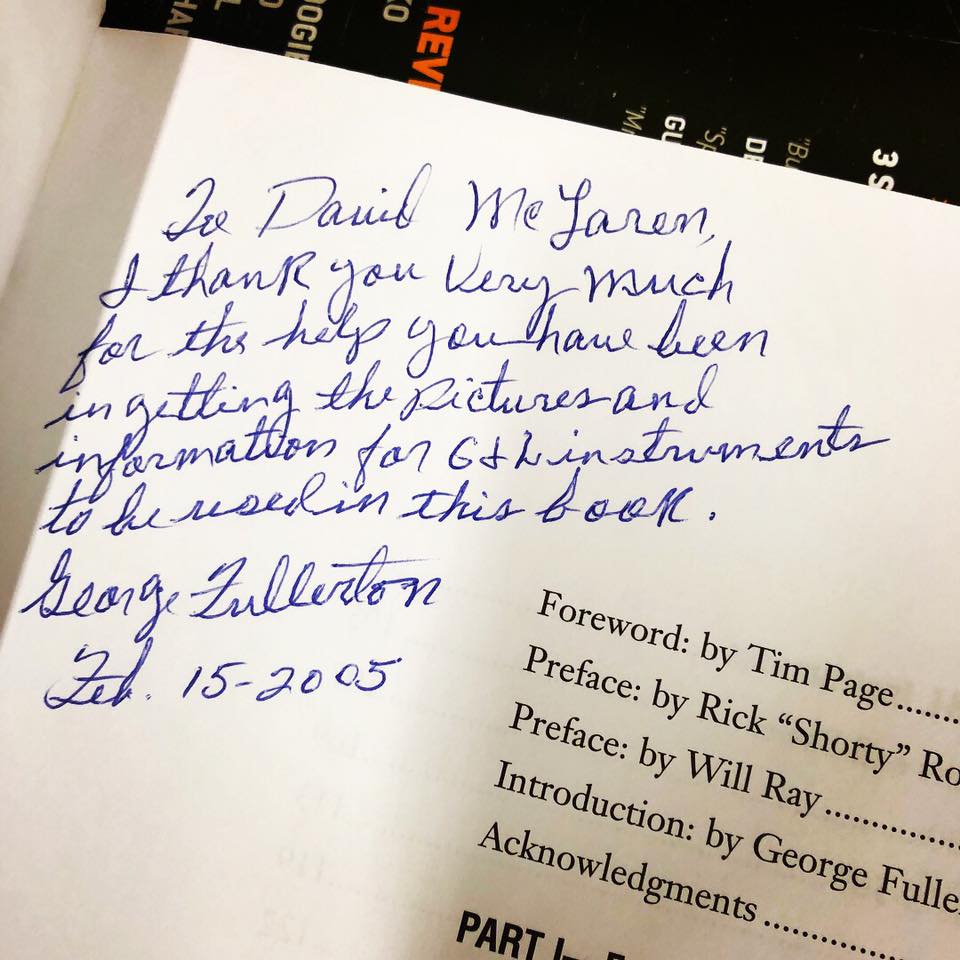 REVI
OOGIE
KO
GU
3 S
To David McLaren,
I thank you Very Much
for the help you have been
in getting the pictures and
information for G&L instruments
to be used in this book.
George Fullerton
Feb. 15-2005
Foreword: by Tim Page........
Preface: by Rick “Shorty” Ro
Preface: by Will Ray............
Introduction: by George Fulle
Acknowledgments ..................
PART I—